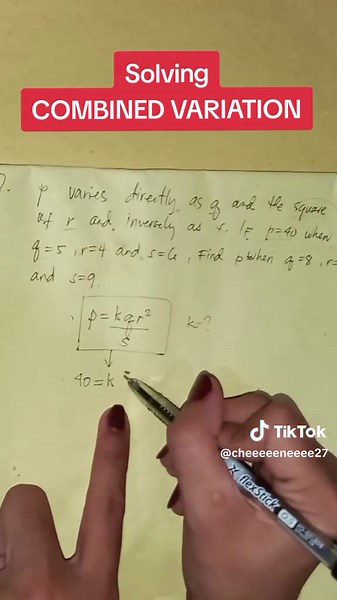 Solving
COMBINED VARIATION
p varies directly as q and the square
of r and inversely as s. If p=40 when
q=5, r=4 and s=6, Find p when q=8, r=
and s=9.
p = kqr²
s
k=?
40=k
TikTok
@cheeeeeneeee27
flexstick
0.5